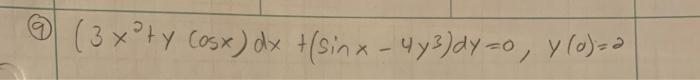 ⑨ (3x²+y cosx)dx +(sinx - 4y³)dy=0, y(0)=2